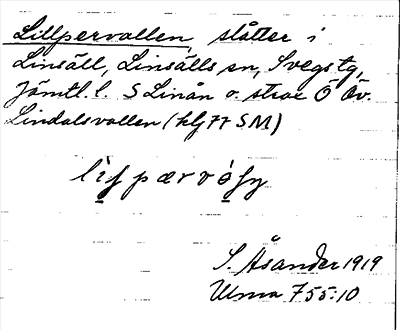 Lillpervallen, slåtter i
Linsäll, Linsälls sn, Svegs tg,
Jämtl. l. S Linån o. strax Ö Öv.
Lindalsvallen (hlj 77 SM)
S. Åsander 1919
Ulma 755:10